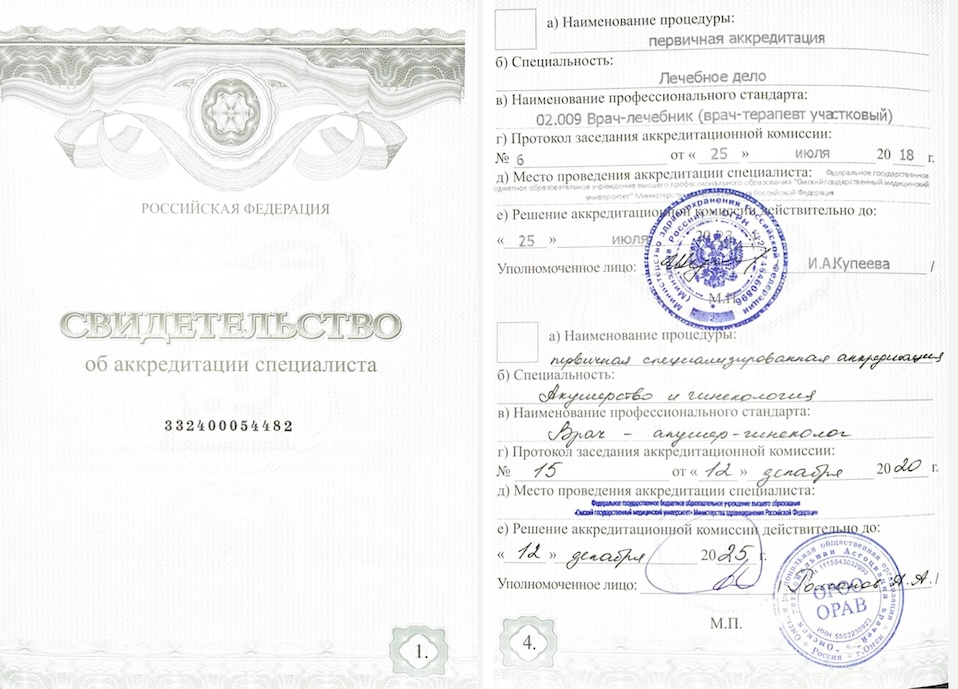 РОССИЙСКАЯ ФЕДЕРАЦИЯ
СВИДЕТЕЛЬСТВО
об аккредитации специалиста
332400054482
1.
а) Наименование процедуры:
первичная аккредитация
б) Специальность:
Лечебное дело
в) Наименование профессионального стандарта:
02.009 Врач-лечебник (врач-терапевт участковый)
г) Протокол заседания аккредитационной комиссии:
№ 6 от « 25 » июля 20 18 г.
д) Место проведения аккредитации специалиста: Федеральное государственное
бюджетное образовательное учреждение высшего профессионального образования "Омский государственный медицинский
университет" Российской Федерации
е) Решение аккредитационной комиссии действительно до:
« 25 » июля 20
Уполномоченное лицо: И.А.Купеева /
М.П.
а) Наименование процедуры:
первичная специализированная аккредитация
б) Специальность:
Акушерство и гинекология
в) Наименование профессионального стандарта:
Врач - акушер-гинеколог
г) Протокол заседания аккредитационной комиссии:
№ 15 от « 12 » декабря 20 20 г.
д) Место проведения аккредитации специалиста:
Федеральное государственное бюджетное образовательное учреждение высшего образования
«Омский государственный медицинский университет» Министерства здравоохранения Российской Федерации
е) Решение аккредитационной комиссии действительно до:
« 12 » декабря 20 25 г.
Уполномоченное лицо: / А.А. /
ОРОО
ОРАВ
М.П.
4.